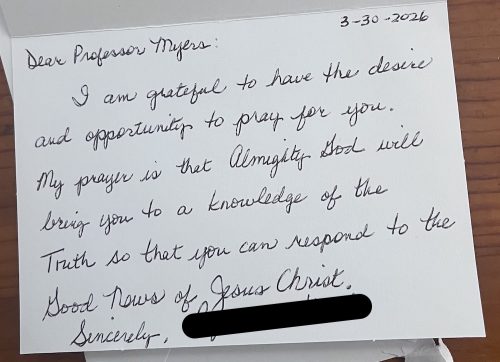 3-30-2026
Dear Professor Myers:
I am grateful to have the desire
and opportunity to pray for you.
My prayer is that Almighty God will
bring you to a knowledge of the
Truth so that you can respond to the
Good News of Jesus Christ.
Sincerely,